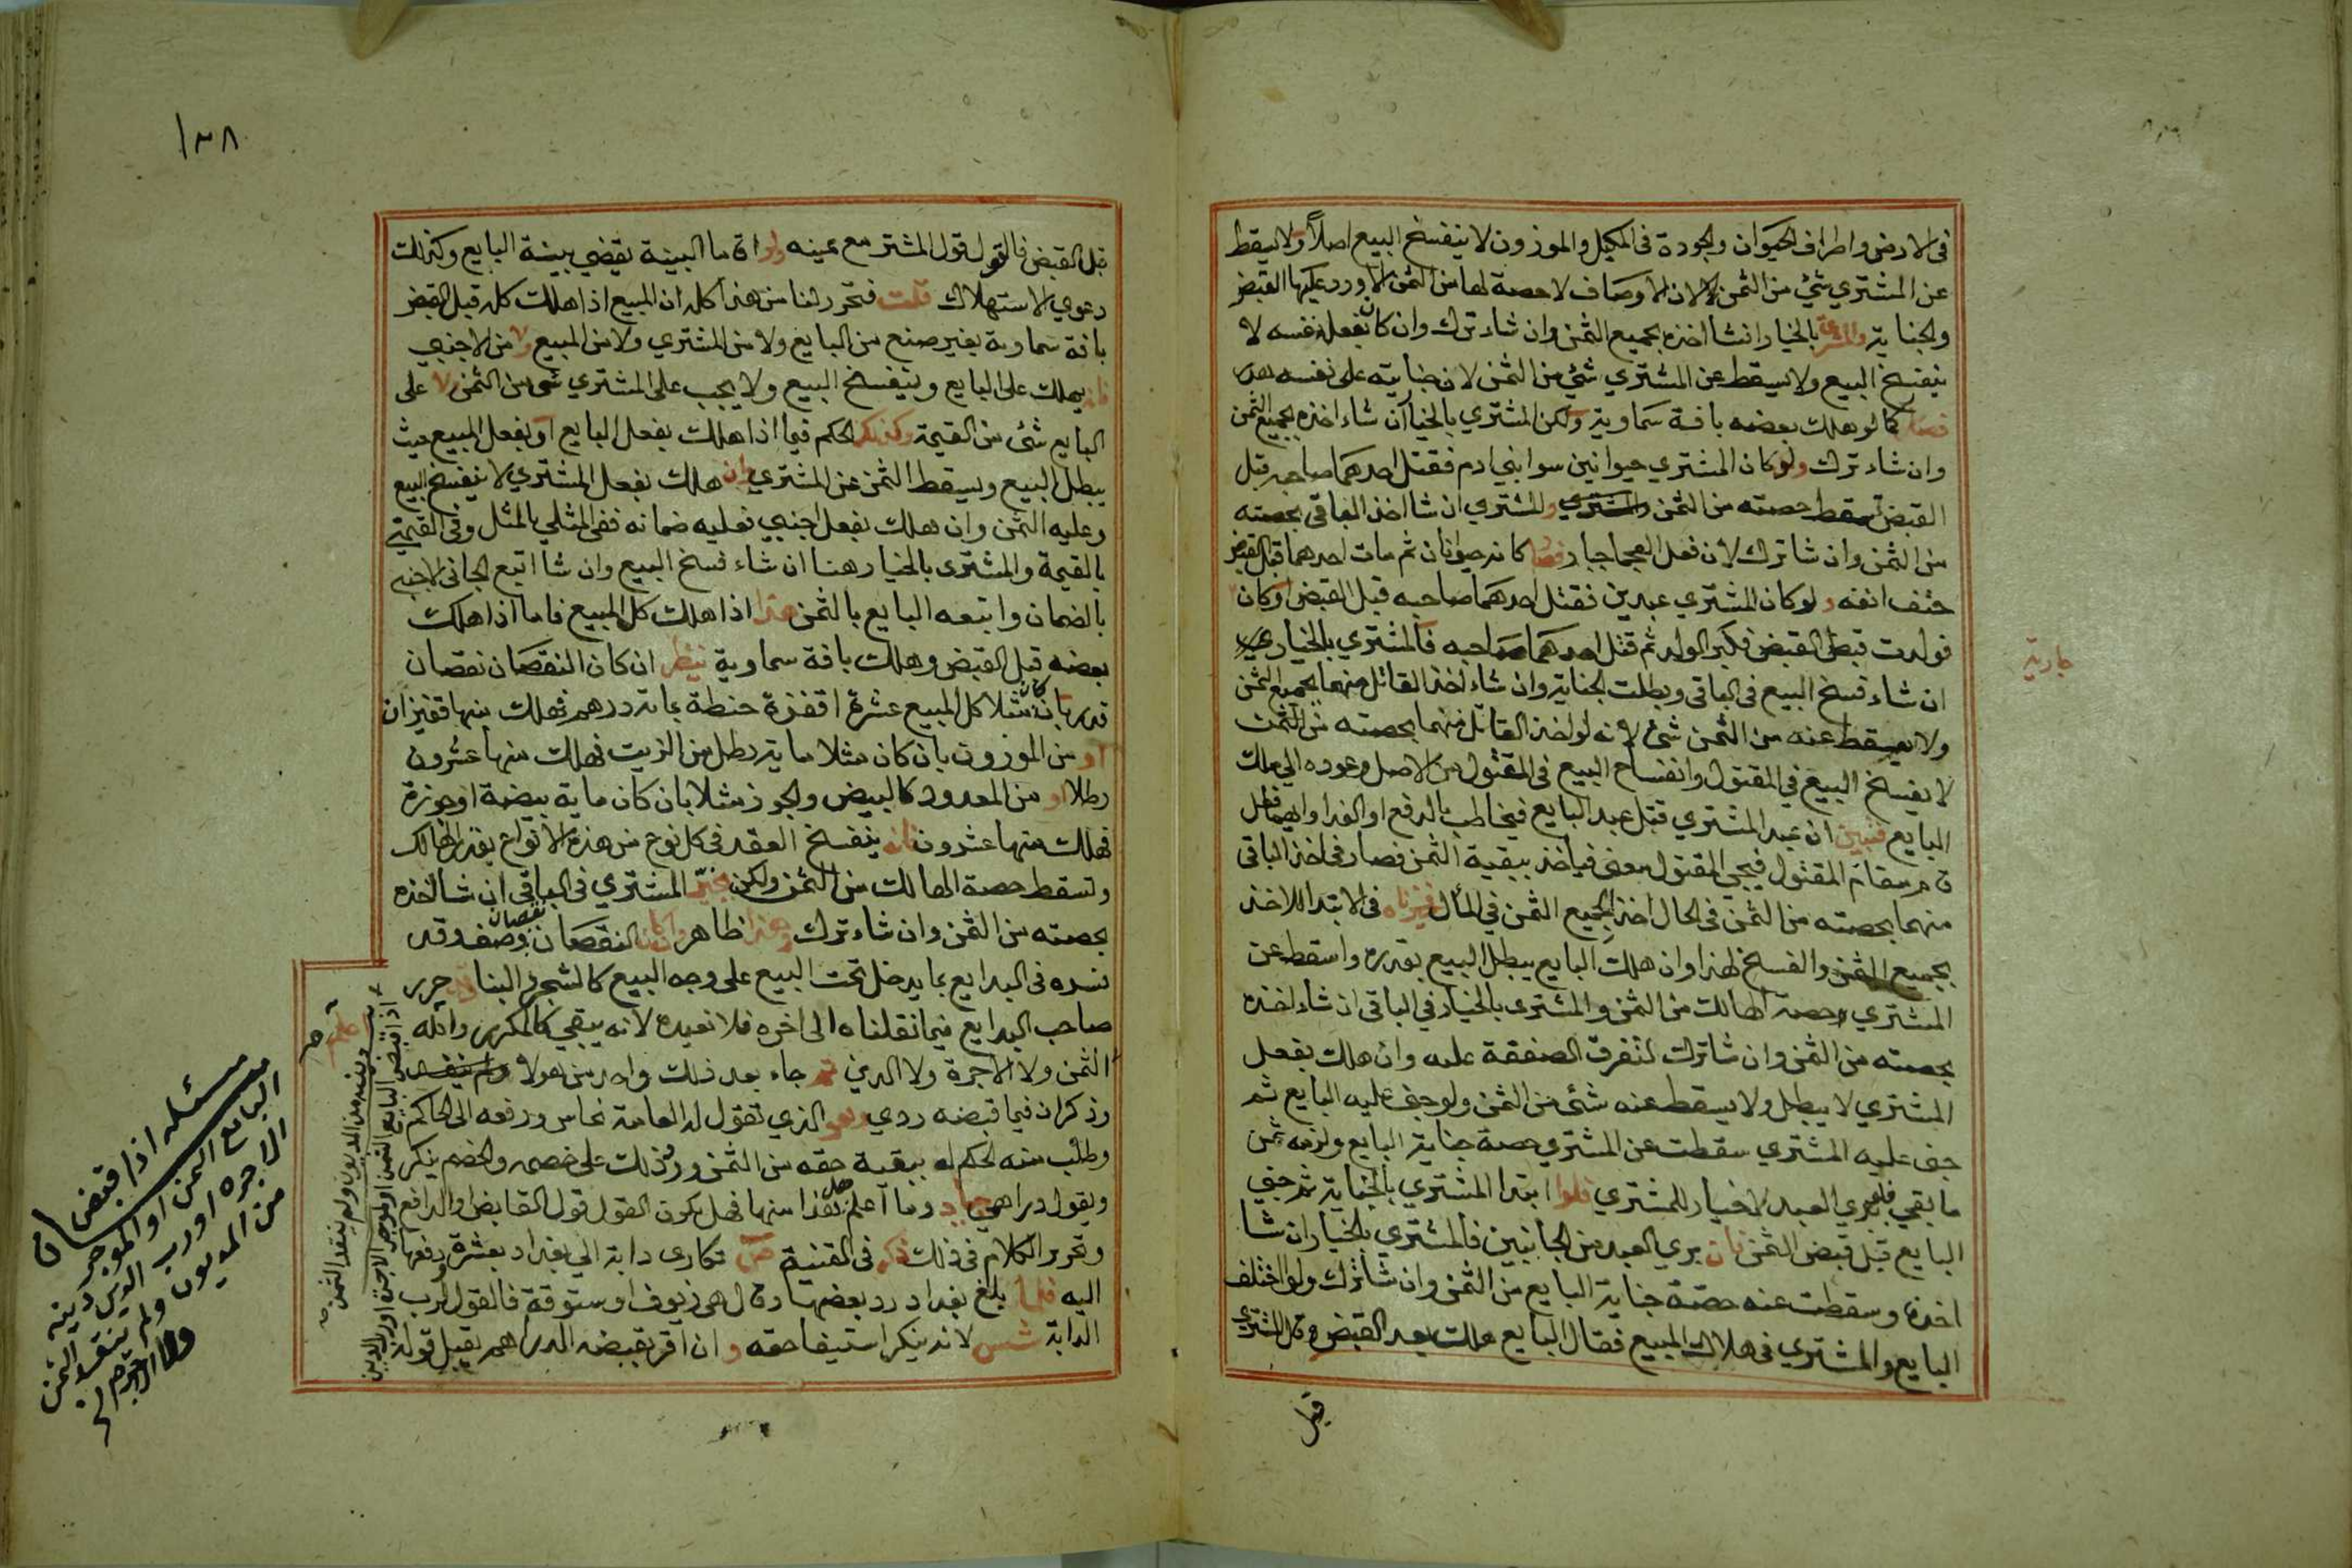 في الارض واطراف الحيوان والجودة في المكيل والموزون لا ينفسخ البيع اصلاً ولا يسقط
عن المشتري شئ من الثمن لان الاوصاف لا حصة لها من الثمن الا ورد عليها القبض
والجناية والمشترى بالخيار ان شا اخذه بجميع الثمن وان شاء ترك وان كان بفعل نفسه لا
ينفسخ البيع ولا يسقط عن المشتري شئ من الثمن لان جنايته على نفسه هدر
فصار كما لو هلك بعضه بافة سماوية ولكن المشتري بالخيار ان شاء اخذه بجميع الثمن
وان شاء ترك ولو كان المشتري حيوانين سوا بني ادم فقتل احدهما صاحبه قبل
القبض تسقط حصته من الثمن والمشتري ان شا اخذ الباقي بحصته
من الثمن وان شا ترك لان فعل العجما جبار فصار كانه حيوانان ثم مات احدهما قبل القبض
حتف انفه ولو كان المشتري عبدين فقتل احدهما صاحبه قبل القبض او كان
جارية
فولدت قبل القبض فكبر الولد ثم قتل احدهما صاحبه فالمشتري بالخيار
ان شاء فسخ البيع في الباقي وبطلت الجناية وان شاء اخذ القاتل منهما بجميع الثمن
ولا يسقط عنه من الثمن شئ لانه لو اخذ القاتل منهما بحصته من الثمن
لا يفسخ البيع في المقتول وانفساخ البيع في المقتول من الاصل وعوده الى ملك
البايع فتبين ان عبد المشتري قتل عبد البايع فيخاطب بالدفع او الفدا وايهما فعل
قام مقام المقتول فيحي المقتول معنى فياخذ ببقية الثمن فصار في اخذ الباقي
منهما بحصته من الثمن في الحال اخذ بجميع الثمن في المأل فخيرناه في الابتدا للاخذ
بجميع الثمن والفسخ لهذا وان هلك البايع يبطل البيع بقدره واسقط عن
المشتري حصة الهالك من الثمن والمشتري بالخيار في الباقي ان شاء اخذه
بحصته من الثمن وان شا ترك لتفرق الصفقة عليه وان هلك بفعل
المشتري لا يبطل ولا يسقط عنه شئ من الثمن ولو جنى عليه البايع ثم
جنى عليه المشتري سقطت عن المشتري حصة جناية البايع ولزمه ثمن
ما بقي فلو بري العبد لا خيار للمشتري فلوا ابتدا المشتري بالجناية ثم جنى
البايع قبل قبض الثمن فان بري العبد من الجانبين فالمشتري بالخيار ان شا
اخذه وسقطت عنه حصة جناية البايع من الثمن وان شا ترك ولو اختلف
البايع والمشتري في هلاك المبيع فقال البايع هلك بعد القبض وقال المشتري
قبل
١٣٨
قبل القبض فالقول قول المشتر مع يمينه ولو اقاما البينة يقضي ببينة البايع وكذلك
دعوى الاستهلاك قلت فتحرر لنا من هذا كله ان المبيع اذا هلك كله قبل القبض
بافة سماوية بغير صنع من البايع ولا من المشتري ولا من المبيع ولا من الاجنبي
فانه يهلك على البايع وينفسخ البيع ولا يجب على المشتري شئ من الثمن ولا على
البايع شئ من القيمة وكذلك الحكم فيما اذا هلك بفعل البايع او بفعل المبيع حيث
يبطل البيع ويسقط الثمن عن المشتري وان هلك بفعل المشتري لا ينفسخ البيع
وعليه الثمن وان هلك بفعل اجنبي فعليه ضمانه ففي المثلي بالمثل وفي القيمي
بالقيمة والمشترى بالخيار هنا ان شاء فسخ البيع وان شا اتبع الجاني الاجنبي
بالضمان واتبعه البايع بالثمن هذا اذا هلك كل المبيع فاما اذا هلك
بعضه قبل القبض وهلك بافة سماوية ينظر ان كان النقصان نقصان
قدر بان كان مثلا كل المبيع عشرة اقفزة حنطة بماية درهم فهلك منها قفيزان
او من الموزون بان كان مثلا ماية رطل من الزيت فهلك منها عشرون
رطلا او من المعدود كالبيض والجوز مثلا بان كان ماية بيضة او جوزة
فهلك منها عشرون فانه ينفسخ العقد في كل نوع من هذه الانواع بقدر الهالك
وتسقط حصة الهالك من الثمن ولكن يخير المشتري في الباقي ان شا اخذه
بحصته من الثمن وان شاء ترك وهذا ظاهر وان كان النقصان نقصان وصف وقد
فسره في البدايع بما يدخل تحت البيع على وجه البيع كالشجر والبنا وقد حرر
صاحب البدايع فيما نقلناه الى اخره فلا نعيده لانه يبقى كالمكرر والله اعلم
الثمن ولا الاجرة ولا الدين ثم جاء بعد ذلك واحد من هولا
وذكر ان فيما قبضه ردي وهو الذي تقول له العامة نحاس ورفعه الى الحاكم
وطلب منه الحكم له ببقية حقه من الثمن ورد ذلك على خصمه والخصم ينكر
ويقول دراهمي جياد وما اعلم هل هذا منها فهل يكون القول قول القابض او الدافع
وتحرير الكلام في ذلك ذكر في القنية تكارى دابة الى بغداد بعشرة ودفعها
اليه فلما بلغ بغداد رد بعضها وقال هي زيوف او ستوقة فالقول لرب
الدابة شمس لانه ينكر استيفا حقه وان اقر بقبضه الدراهم يقبل قوله
اذا قبض البايع الثمن او الموجر الاجرة او رب الدين
دينه من المديون ولم ينقد الثمن
مسئله اذا قبض
البايع الثمن او الموجر
الاجره او رب الدين دينه
من المديون ولم ينقد الثمن
ولا الاجره الخ